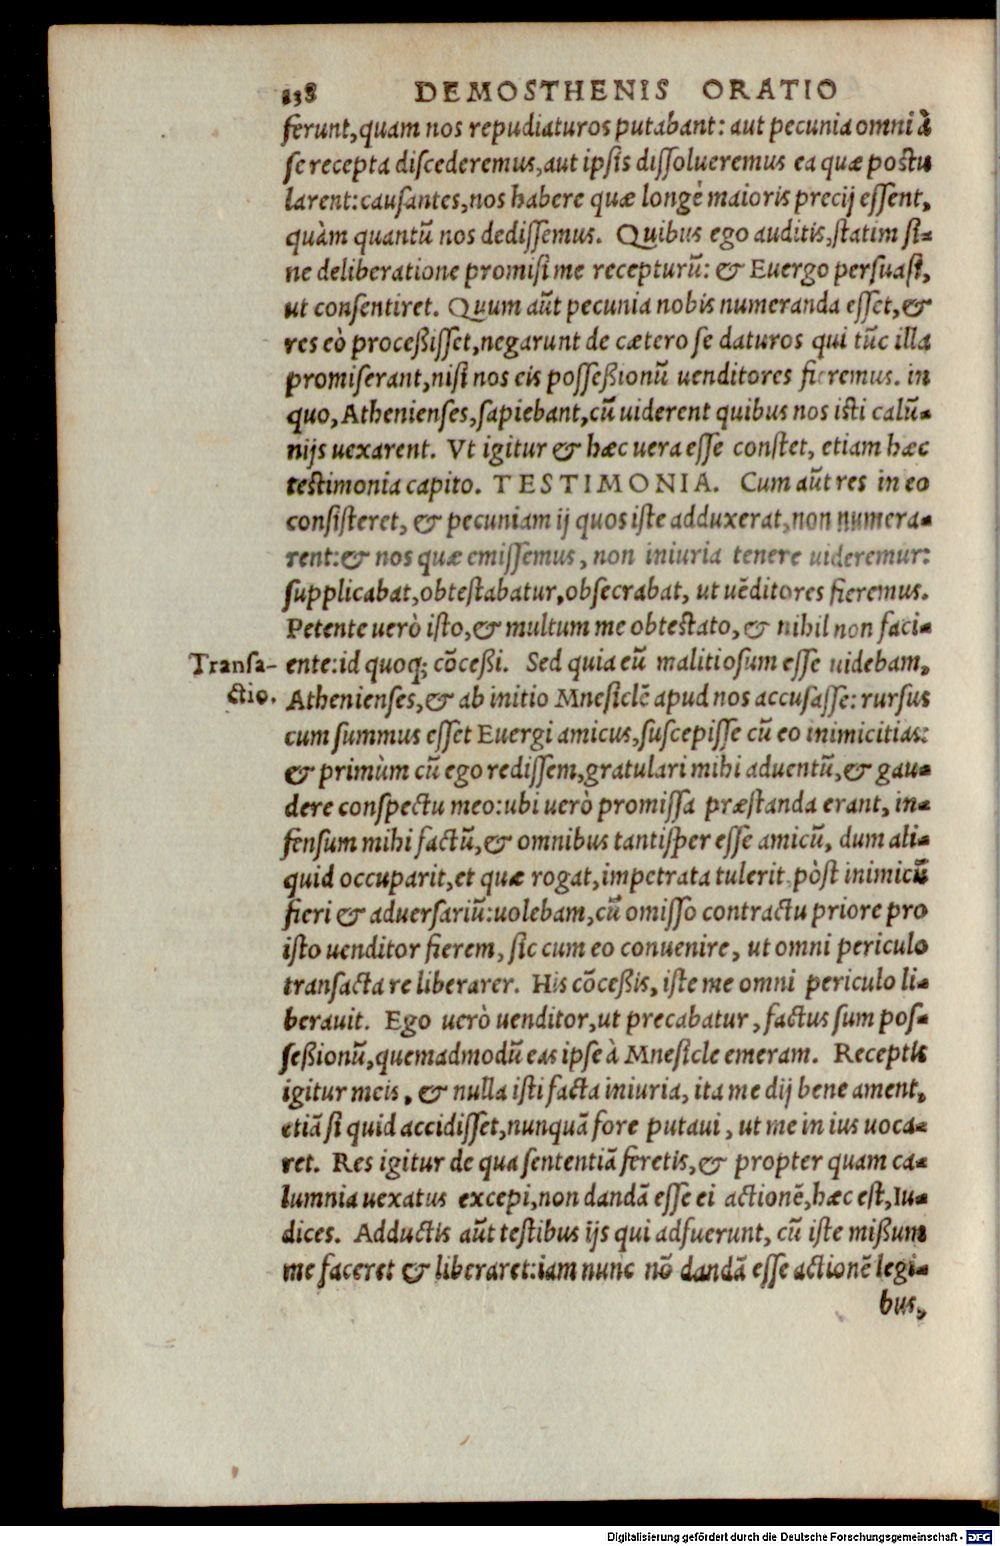 238 DEMOSTHENIS ORATIO
ferunt, quam nos repudiaturos putabant: aut pecunia omni à
se recepta discederemus, aut ipsis dissolueremus ea quæ postu
larent: causantes, nos habere quæ longè maioris precij essent,
quàm quantū nos dedissemus. Quibus ego auditis, statim si-
ne deliberatione promisi me recepturū: & Euergo persuasi,
ut consentiret. Quum aūt pecunia nobis numeranda esset, &
res eò proceßisset, negarunt de cætero se daturos qui tūc illa
promiserant, nisi nos eis posseßionū uenditores fieremus. in
quo, Athenienses, sapiebant, cū uiderent quibus nos isti calū-
nijs uexarent. Vt igitur & hæc uera esse constet, etiam hæc
testimonia capito. TESTIMONIA. Cum aūt res in eo
consisteret, & pecuniam ij quos iste adduxerat, non numera-
rent: & nos quæ emissemus, non iniuria tenere uideremur:
supplicabat, obtestabatur, obsecrabat, ut uēditores fieremus.
Petente uerò isto, & multum me obtestato, & nihil non faci-
Transa- ente: id quoq; cōceßi. Sed quia eū malitiosum esse uidebam,
ctio. Athenienses, & ab initio Mnesiclē apud nos accusasse: rursus
cum summus esset Euergi amicus, suscepisse cū eo inimicitias:
& primùm cū ego redissem, gratulari mihi aduentū, & gau-
dere conspectu meo: ubi uerò promissa præstanda erant, in-
fensum mihi factū, & omnibus tantisper esse amicū, dum ali-
quid occuparit, et quæ rogat, impetrata tulerit pòst inimicū
fieri & aduersariū: uolebam, cū omisso contractu priore pro
isto uenditor fierem, sic cum eo conuenire, ut omni periculo
transacta re liberarer. His cōceßis, iste me omni periculo li-
berauit. Ego uerò uenditor, ut precabatur, factus sum pos-
seßionū, quemadmodū eas ipse à Mnesicle emeram. Receptis
igitur meis, & nulla isti facta iniuria, ita me dij bene ament,
etiā si quid accidisset, nunquā fore putaui, ut me in ius uoca-
ret. Res igitur de qua sententiā feretis, & propter quam ca-
lumnia uexatus excepi, non dandā esse ei actionē, hæc est, Iu-
dices. Adductis aūt testibus ijs qui adfuerunt, cū iste mißum
me faceret & liberaret: iam nunc nō dandā esse actionē legi-
bus,
Digitalisierung gefördert durch die Deutsche Forschungsgemeinschaft - DFG